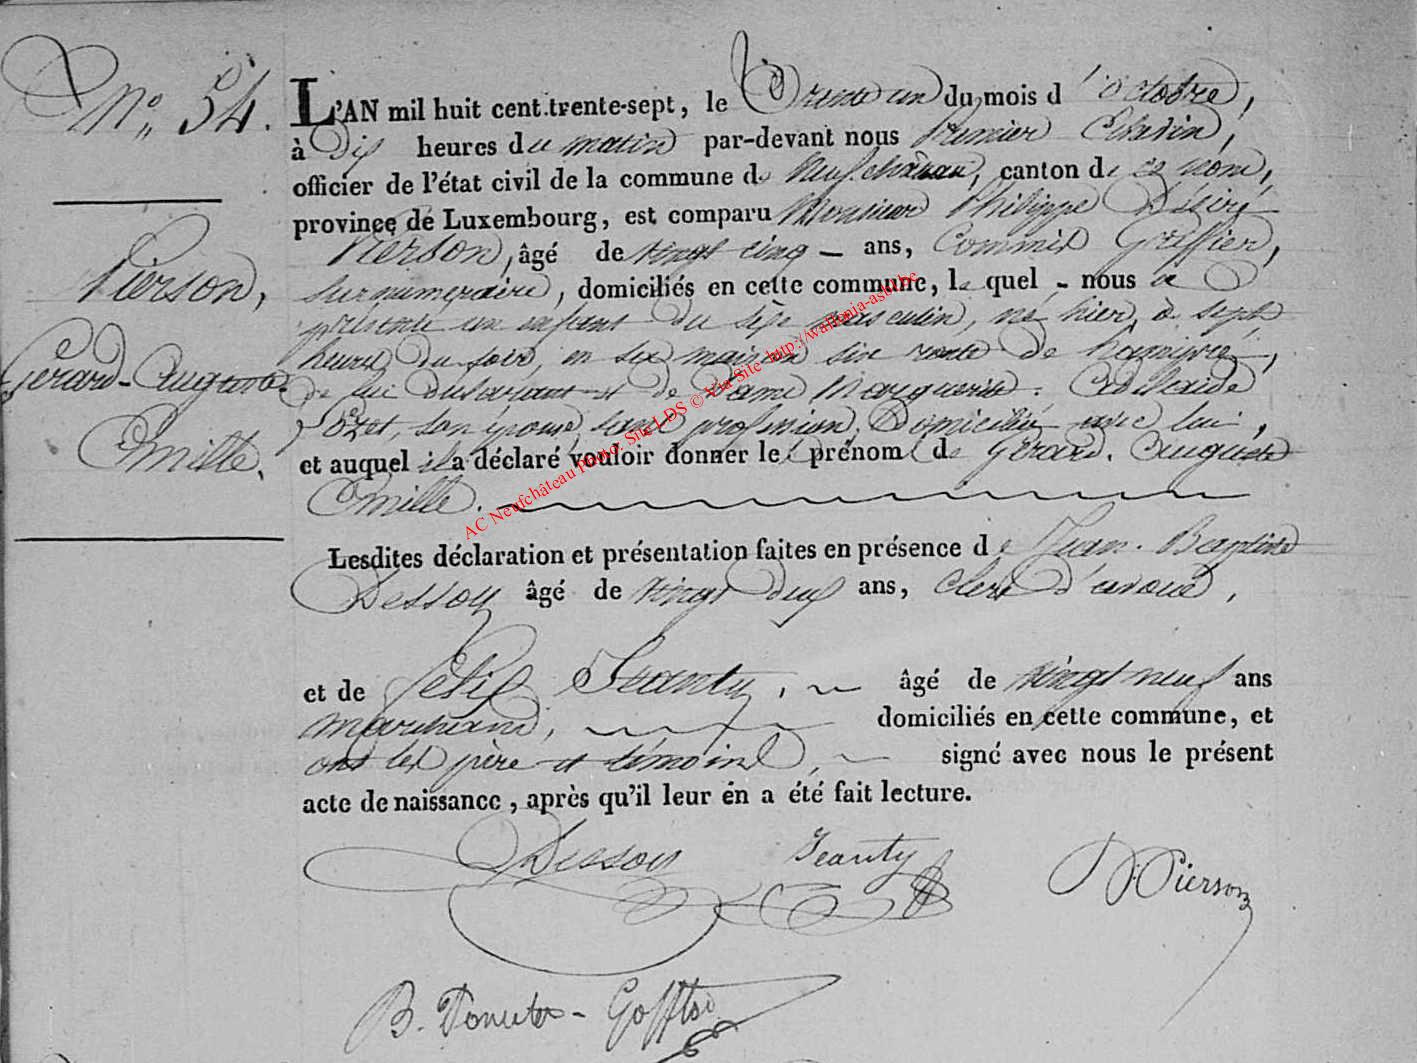 N° 54.
Pierson,
Gérard-Auguste
Emille.
L'AN mil huit cent trente-sept, le Trente un du mois d'octobre,
à Dix heures du matin par-devant nous Premier Echevin,
officier de l'état civil de la commune de Neufchâteau, canton de ce nom,
province de Luxembourg, est comparu Monsieur Philippe Désiré
Pierson, âgé de vingt cinq ans, Commis Greffier,
surnuméraire, domiciliés en cette commune, lequel nous a
présenté un enfant du sexe masculin, né hier, à sept
heures du soir, en sa maison sise route de
de lui déclarant et de Dame Marguerite. Adélaïde
Ozet, son épouse, sans profession, Domiciliée avec lui,
et auquel il a déclaré vouloir donner le prénom de Gérard. Auguste
Emille.
Lesdites déclaration et présentation faites en présence de Jean. Baptiste
Dessoy âgé de vingt deux ans, Clerc d'avoué,
et de Félix Jeanty, âgé de vingt neuf ans
marchand, domiciliés en cette commune, et
ont les père et témoins, signé avec nous le présent
acte de naissance, après qu'il leur en a été fait lecture.
Dessoy Jeanty D. Pierson
AC Neufchâteau Photo: Site LDS © Via Site http://wallonia-asbl.be